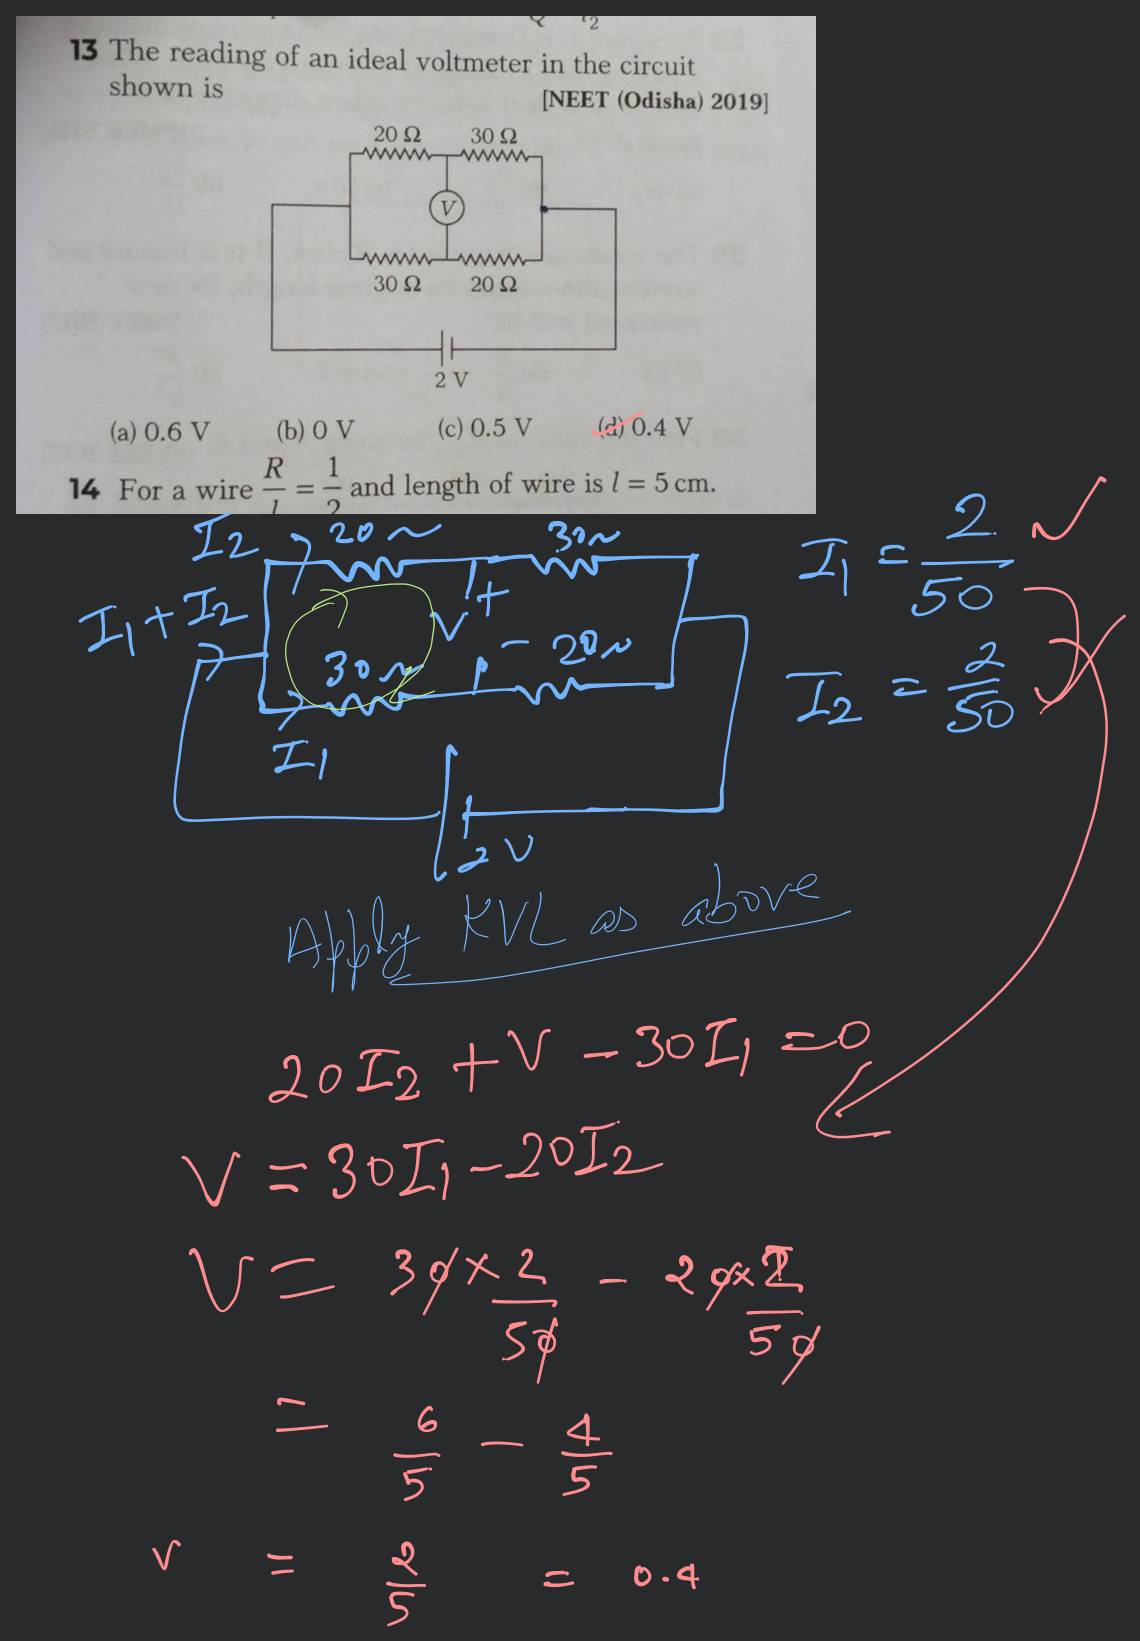 13 The reading of an ideal voltmeter in the circuit
shown is [NEET (Odisha) 2019]
20 Ω 30 Ω
V
30 Ω 20 Ω
2 V
(a) 0.6 V (b) 0 V (c) 0.5 V (d) 0.4 V
14 For a wire R/l = 1/2 and length of wire is l = 5 cm.
I2 20 ~ 30~
I1 = 2/50 ✓
I1 + I2
V +
-
30 ~ 20~
I2 = 2/50
I1
2 V
Apply KVL as above
20I2 + V - 30I1 = 0
V = 30I1 - 20I2
V = 30 × 2/50 - 20 × 2/50
= 6/5 - 4/5
V = 2/5 = 0.4